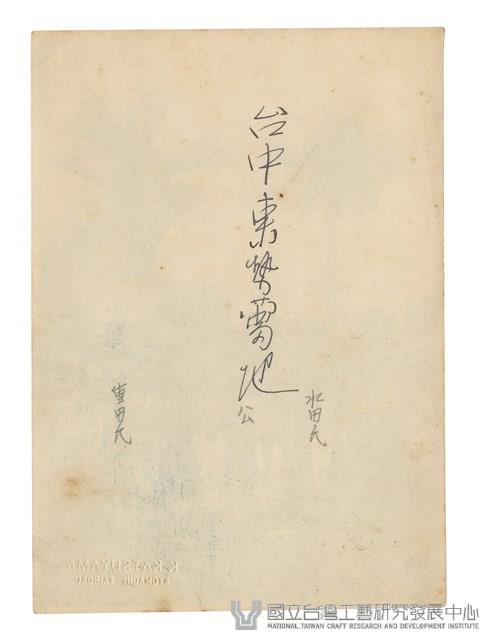 台中東勢營地
公
水田氏
重田氏
K.KATSUYAMA
國立台灣工藝研究發展中心
NATIONAL TAIWAN CRAFT RESEARCH AND DEVELOPMENT INSTITUTE